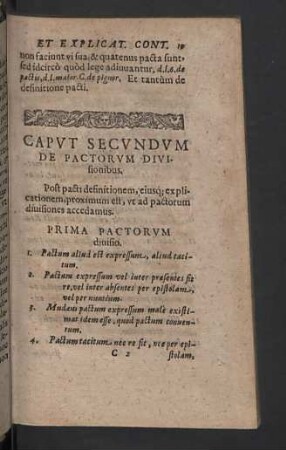 ET EXPLICAT. CONT. 19
non faciunt vi sua, & quatenus pacta sunt,
sed idcirco quòd lege adiuuantur, d.l.6. de
pactis, d.l. maior. C. de pignor. Et tantùm de
definitione pacti.
CAPVT SECVNDVM
DE PACTORVM DIVI-
sionibus.
Post pacti definitionem, eiusq; expli-
cationem, proximum est, vt ad pactorum
diuisiones accedamus.
PRIMA PACTORVM
diuisio.
1. Pactum aliud est expressum, aliud taci-
tum.
2. Pactum expressum vel inter præsentes fit
re, vel inter absentes per epistolam,
vel per nuntium.
3. Mudæus pactum expressum male existi-
mat idem esse, quod pactum conuen-
tum.
4. Pactum tacitum nec re fit, nec per epi-
C 2 stolam,